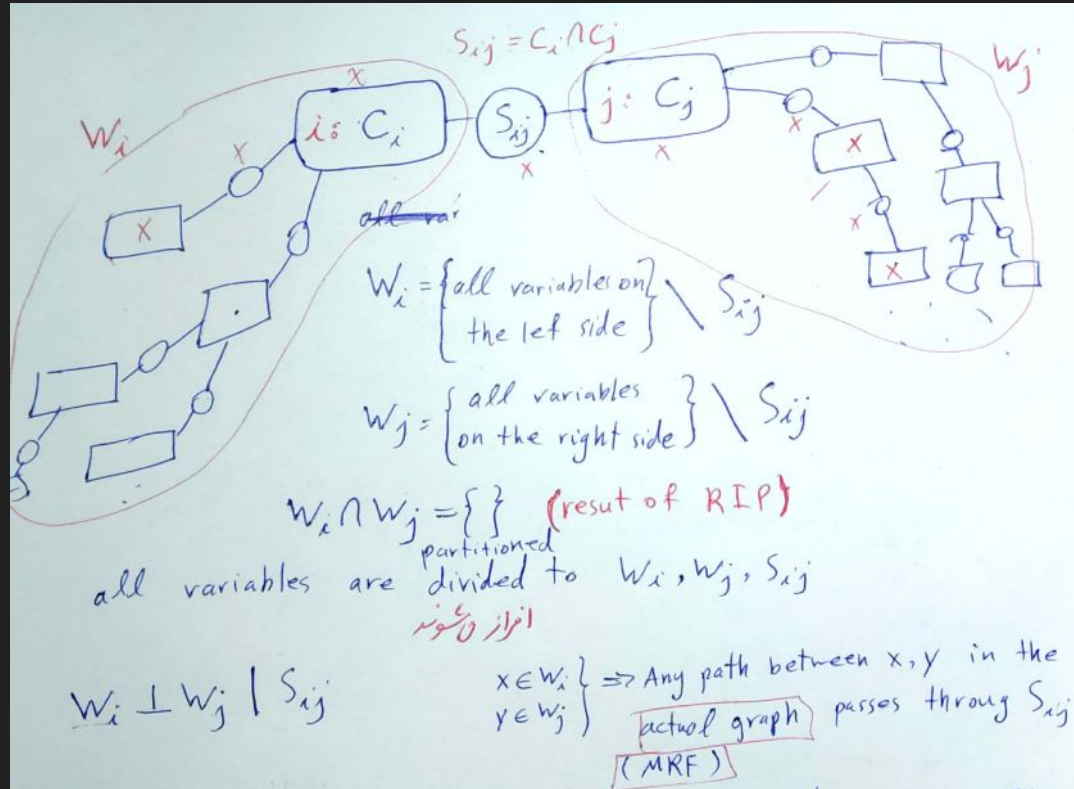 S_ij = C_i ∩ C_j
W_i
x
i: C_i
S_ij
j: C_j
W_j
x
x
x
x
x
x
x
x
all var
W_i = {all variables on the lef side} \ S_ij
W_j = {all variables on the right side} \ S_ij
W_i ∩ W_j = { } (resut of RIP)
partitioned
all variables are divided to W_i, W_j, S_ij
افراز می‌شوند
W_i ⊥ W_j | S_ij
x ∈ W_i
y ∈ W_j
} => Any path between x, y in the
actual graph passes throug S_ij
(MRF)